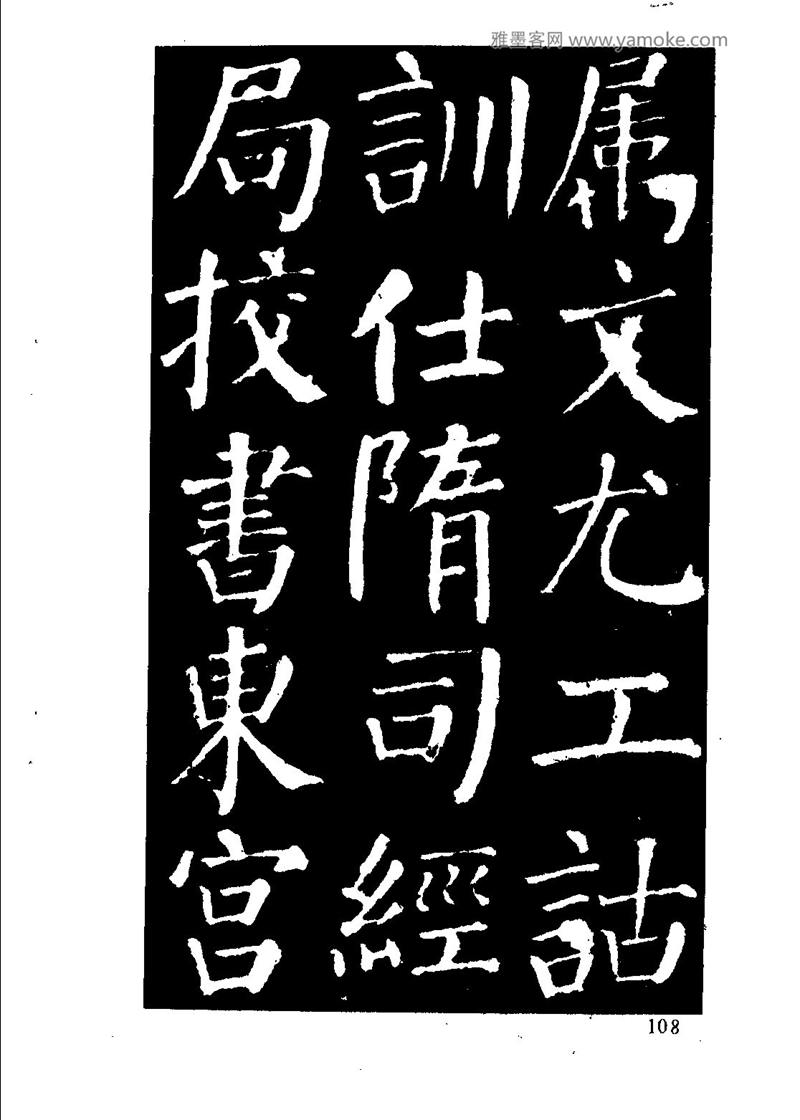 雅墨客网 www.yamoke.com
属文尤工詁
訓仕隋司經
局挍書東宮
108